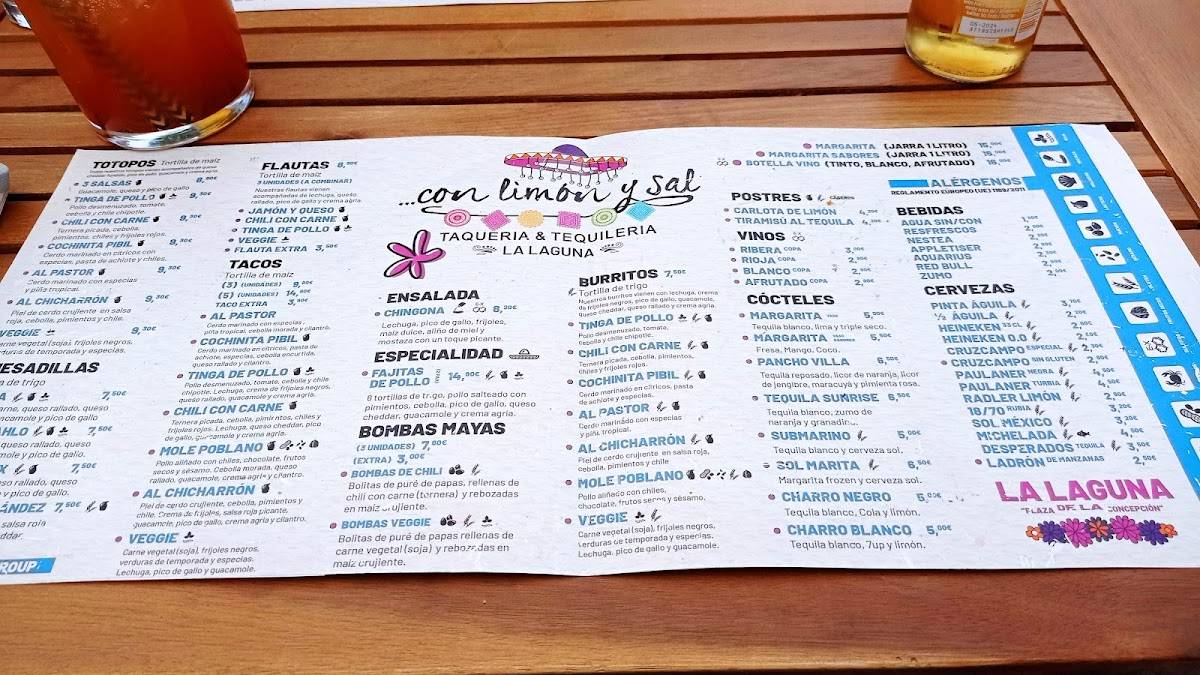 TOTOPOS Tortilla de maíz
3 SALSAS
Guacamole, queso y pico de gallo
TINGA DE POLLO
Pollo desmenuzado, tomate,
cebolla y chile chipotle.
CHILI CON CARNE 9,30€
Ternera picada, cebolla,
pimientos, chiles y frijoles rojos.
COCHINITA PIBIL 9,30€
Cerdo marinado en cítricos con
especias, pasta de achiote y chiles.
AL PASTOR 9,30€
Cerdo marinado con especias
y piña tropical.
AL CHICHARRÓN 9,30€
Piel de cerdo crujiente en salsa
roja, cebolla, pimientos y chile.
VEGGIE 9,30€
Carne vegetal (soja), frijoles negros,
verduras de temporada y especias.
ESADILLAS
a de trigo
arne, queso rallado, queso
camole y pico de gallo.
AHLO 7,50€
queso rallado, queso
mole y pico de gallo.
X 7,50€
queso rallado, queso
pico de gallo.
ÁNDEZ 7,50€
salsa roja
ddar.
ROUP
FLAUTAS 8,50€
Tortilla de maíz
3 UNIDADES (A COMBINAR)
Nuestras flautas vienen
acompañadas de lechuga, queso
rallado, pico de gallo y crema agria.
JAMÓN Y QUESO
CHILI CON CARNE
TINGA DE POLLO
VEGGIE
FLAUTA EXTRA 3,50€
TACOS
Tortilla de maíz
(3) (UNIDADES)
(5) (UNIDADES)
TACO EXTRA
AL PASTOR
Cerdo marinado con especias,
piña tropical, cebolla morada y cilantro.
COCHINITA PIBIL
Cerdo marinado en cítricos, pasta de
achiote, especias, cebolla encurtida,
queso rallado y cilantro.
TINGA DE POLLO
Pollo desmenuzado, tomate, cebolla y chile
chipotle. Lechuga, crema de frijoles negros,
queso rallado, guacamole y crema agria.
CHILI CON CARNE
Ternera picada, cebolla, pimientos, chiles y
frijoles rojos. Lechuga, queso cheddar, pico
de gallo, guacamole y crema agria.
MOLE POBLANO
Pollo aliñado con chiles, chocolate, frutos
secos y sésamo. Cebolla morada, queso
rallado, guacamole, crema agria y cilantro.
AL CHICHARRÓN
Piel de cerdo crujiente, cebolla, pimientos y
chile. Crema de frijoles, salsa roja picante,
guacamole, pico de gallo, crema agria y cilantro.
VEGGIE
Carne vegetal (soja), frijoles negros,
verduras de temporada y especias.
Lechuga, pico de gallo y guacamole.
...con limón y sal
TAQUERIA & TEQUILERIA
LA LAGUNA
ENSALADA
CHINGONA 8,90€
Lechuga, pico de gallo, frijoles,
maíz dulce, aliño de miel y
mostaza con un toque picante.
ESPECIALIDAD
FAJITAS
DE POLLO 14,90€
6 tortillas de trigo, pollo salteado con
pimientos, cebolla, pico de gallo, queso
cheddar, guacamole y crema agria.
BOMBAS MAYAS
(3 UNIDADES) 7,00€
(EXTRA) 3,00€
BOMBAS DE CHILI
Bolitas de puré de papas, rellenas de
chili con carne (ternera) y rebozadas
en maíz crujiente.
BOMBAS VEGGIE
Bolitas de puré de papas rellenas de
carne vegetal (soja) y rebozadas en
maíz crujiente.
BURRITOS 7,50€
Tortilla de trigo
Nuestros burritos vienen con lechuga, crema
de frijoles negros, pico de gallo, guacamole,
queso cheddar, queso rallado y crema agria.
TINGA DE POLLO
Pollo desmenuzado, tomate,
cebolla y chile chipotle.
CHILI CON CARNE
Ternera picada, cebolla, pimientos,
chiles y frijoles rojos.
COCHINITA PIBIL
Cerdo marinado en cítricos, pasta
de achiote y especias.
AL PASTOR
Cerdo marinado con especias,
y piña tropical.
AL CHICHARRÓN
Piel de cerdo crujiente en salsa roja,
cebolla, pimientos y chile
MOLE POBLANO
Pollo aliñado con chiles,
chocolate, frutos secos y sésamo.
VEGGIE
Carne vegetal (soja), frijoles negros,
verduras de temporada y especias.
Lechuga, pico de gallo y guacamole.
MARGARITA (JARRA 1 LITRO)
MARGARITA SABORES (JARRA 1 LITRO)
BOTELLA VINO (TINTO, BLANCO, AFRUTADO)
POSTRES
CARLOTA DE LIMÓN
TIRAMISÚ AL TEQUILA
VINOS
RIBERA COPA
RIOJA COPA
BLANCO COPA
AFRUTADO COPA
CÓCTELES
MARGARITA
Tequila blanco, lima y triple seco.
MARGARITA
Fresa, Mango, Coco.
PANCHO VILLA 6,50€
Tequila reposado, licor de naranja, licor
de jengibre, maracuyá y pimienta rosa.
TEQUILA SUNRISE 6,50€
Tequila blanco, zumo de
naranja y granadina.
SUBMARINO 5,00€
Tequila blanco y cerveza sol.
SOL MARITA 6,50€
Margarita frozen y cerveza sol.
CHARRO NEGRO 5,00€
Tequila blanco, Cola y limón.
CHARRO BLANCO 5,00€
Tequila blanco, 7up y limón.
ALÉRGENOS
REGLAMENTO EUROPEO (UE) 1169/2011
BEBIDAS
AGUA SIN/CON
RESFRESCOS
NESTEA
APPLETISER
AQUARIUS
RED BULL
ZUMO
CERVEZAS
PINTA ÁGUILA
½ ÁGUILA
HEINEKEN 33 CL
HEINEKEN 0.0
CRUZCAMPO ESPECIAL
CRUZCAMPO SIN GLUTEN
PAULANER NEGRA
PAULANER TURBIA
RADLER LIMÓN
18/70 RUBIA
SOL MÉXICO
MICHELADA
DESPERADOS TEQUILA
LADRÓN DE MANZANAS
LA LAGUNA
"PLAZA DE LA CONCEPCIÓN"